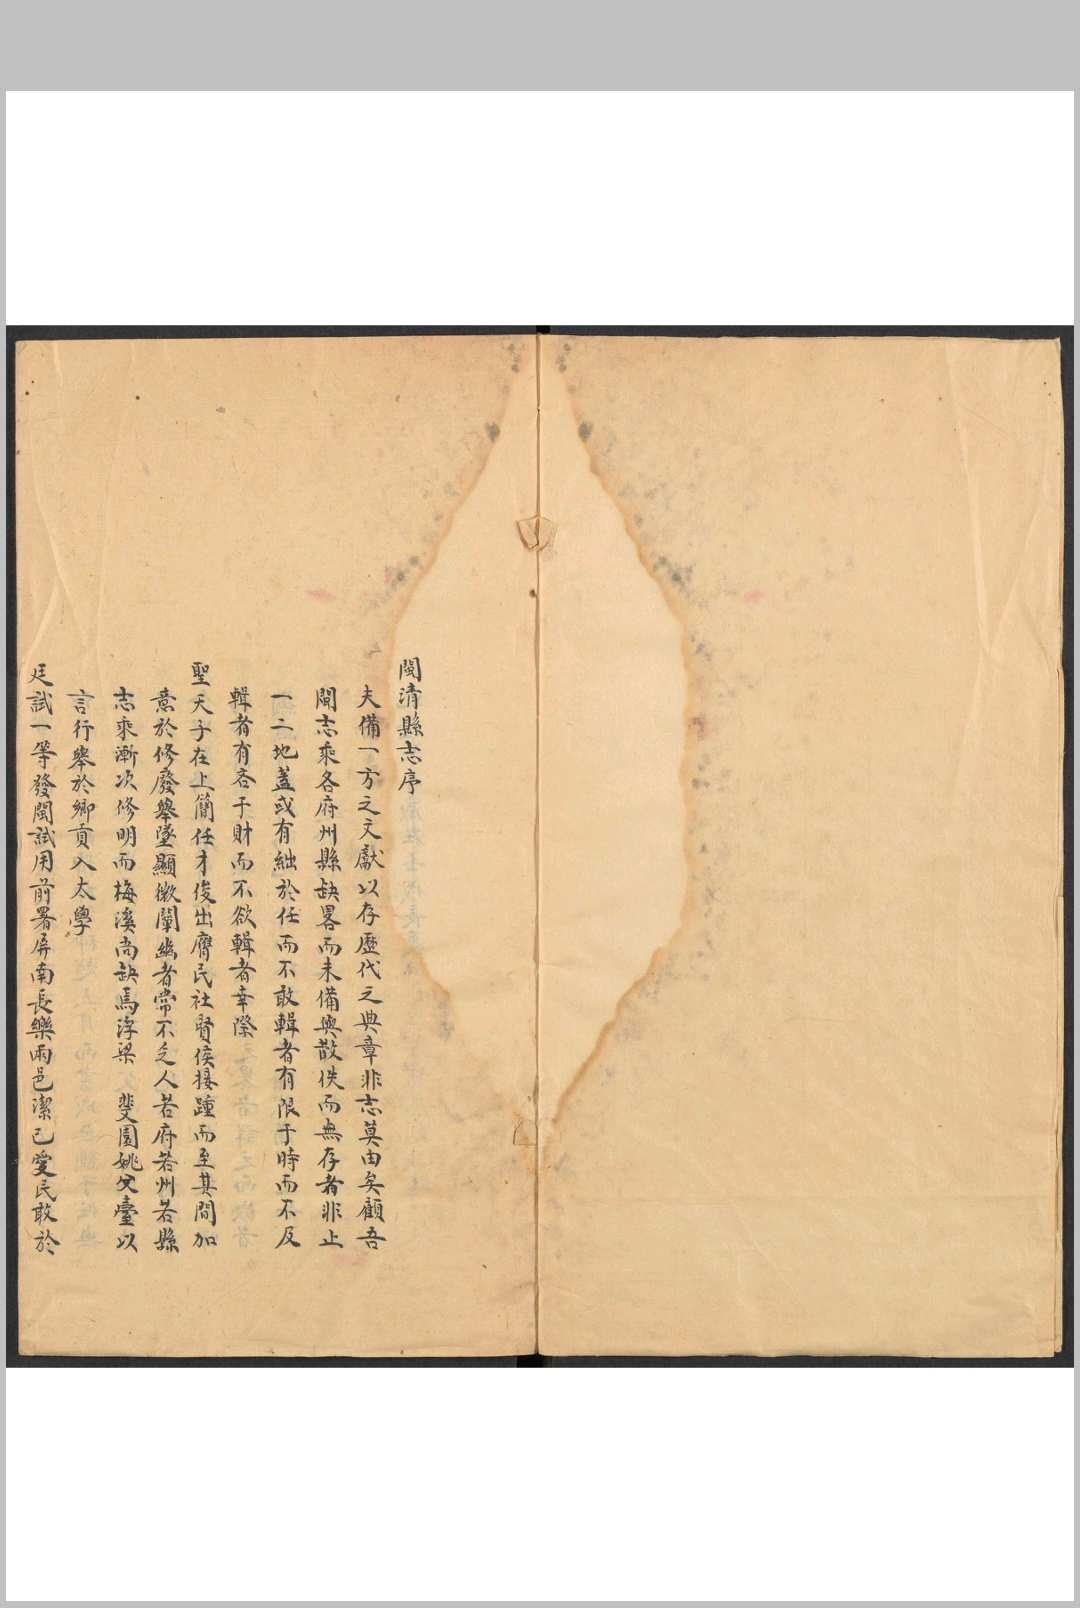 閩清縣志序
夫備一方之文獻以存歷代之典章非志莫由矣顧吾
閩志乘各府州縣缺畧而未備與散佚而無存者非止
一二地蓋或有絀於任而不敢輯者有限于時而不及
輯者有吝于財而不欲輯者幸際
聖天子在上簡任才俊出膺民社賢侯接踵而至其間加
意於修廢舉墜顯微闡幽者常不乏人若府若州若縣
志乘漸次修明而梅溪尚缺焉浮梁斐園姚父臺以
言行舉於鄉貢入太學
廷試一等發閩試用前署屏南長樂兩邑潔己愛民敢於